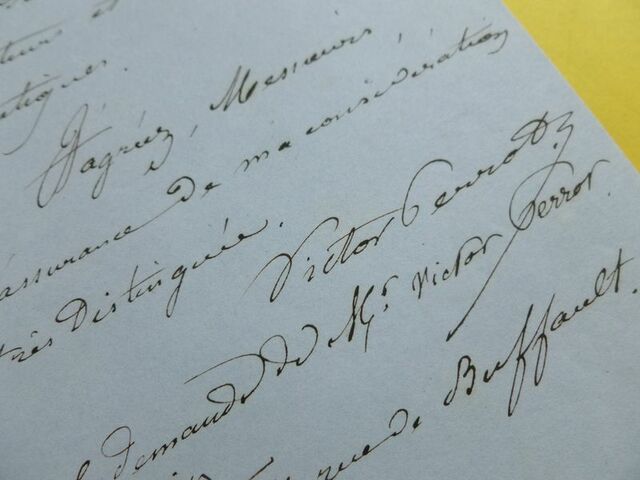 et
J'agréez, Messieurs,
assurance de ma considération
très Distinguée.
Victor Perrot
demande de Mr. Victor Perrot.
que de Buffault.